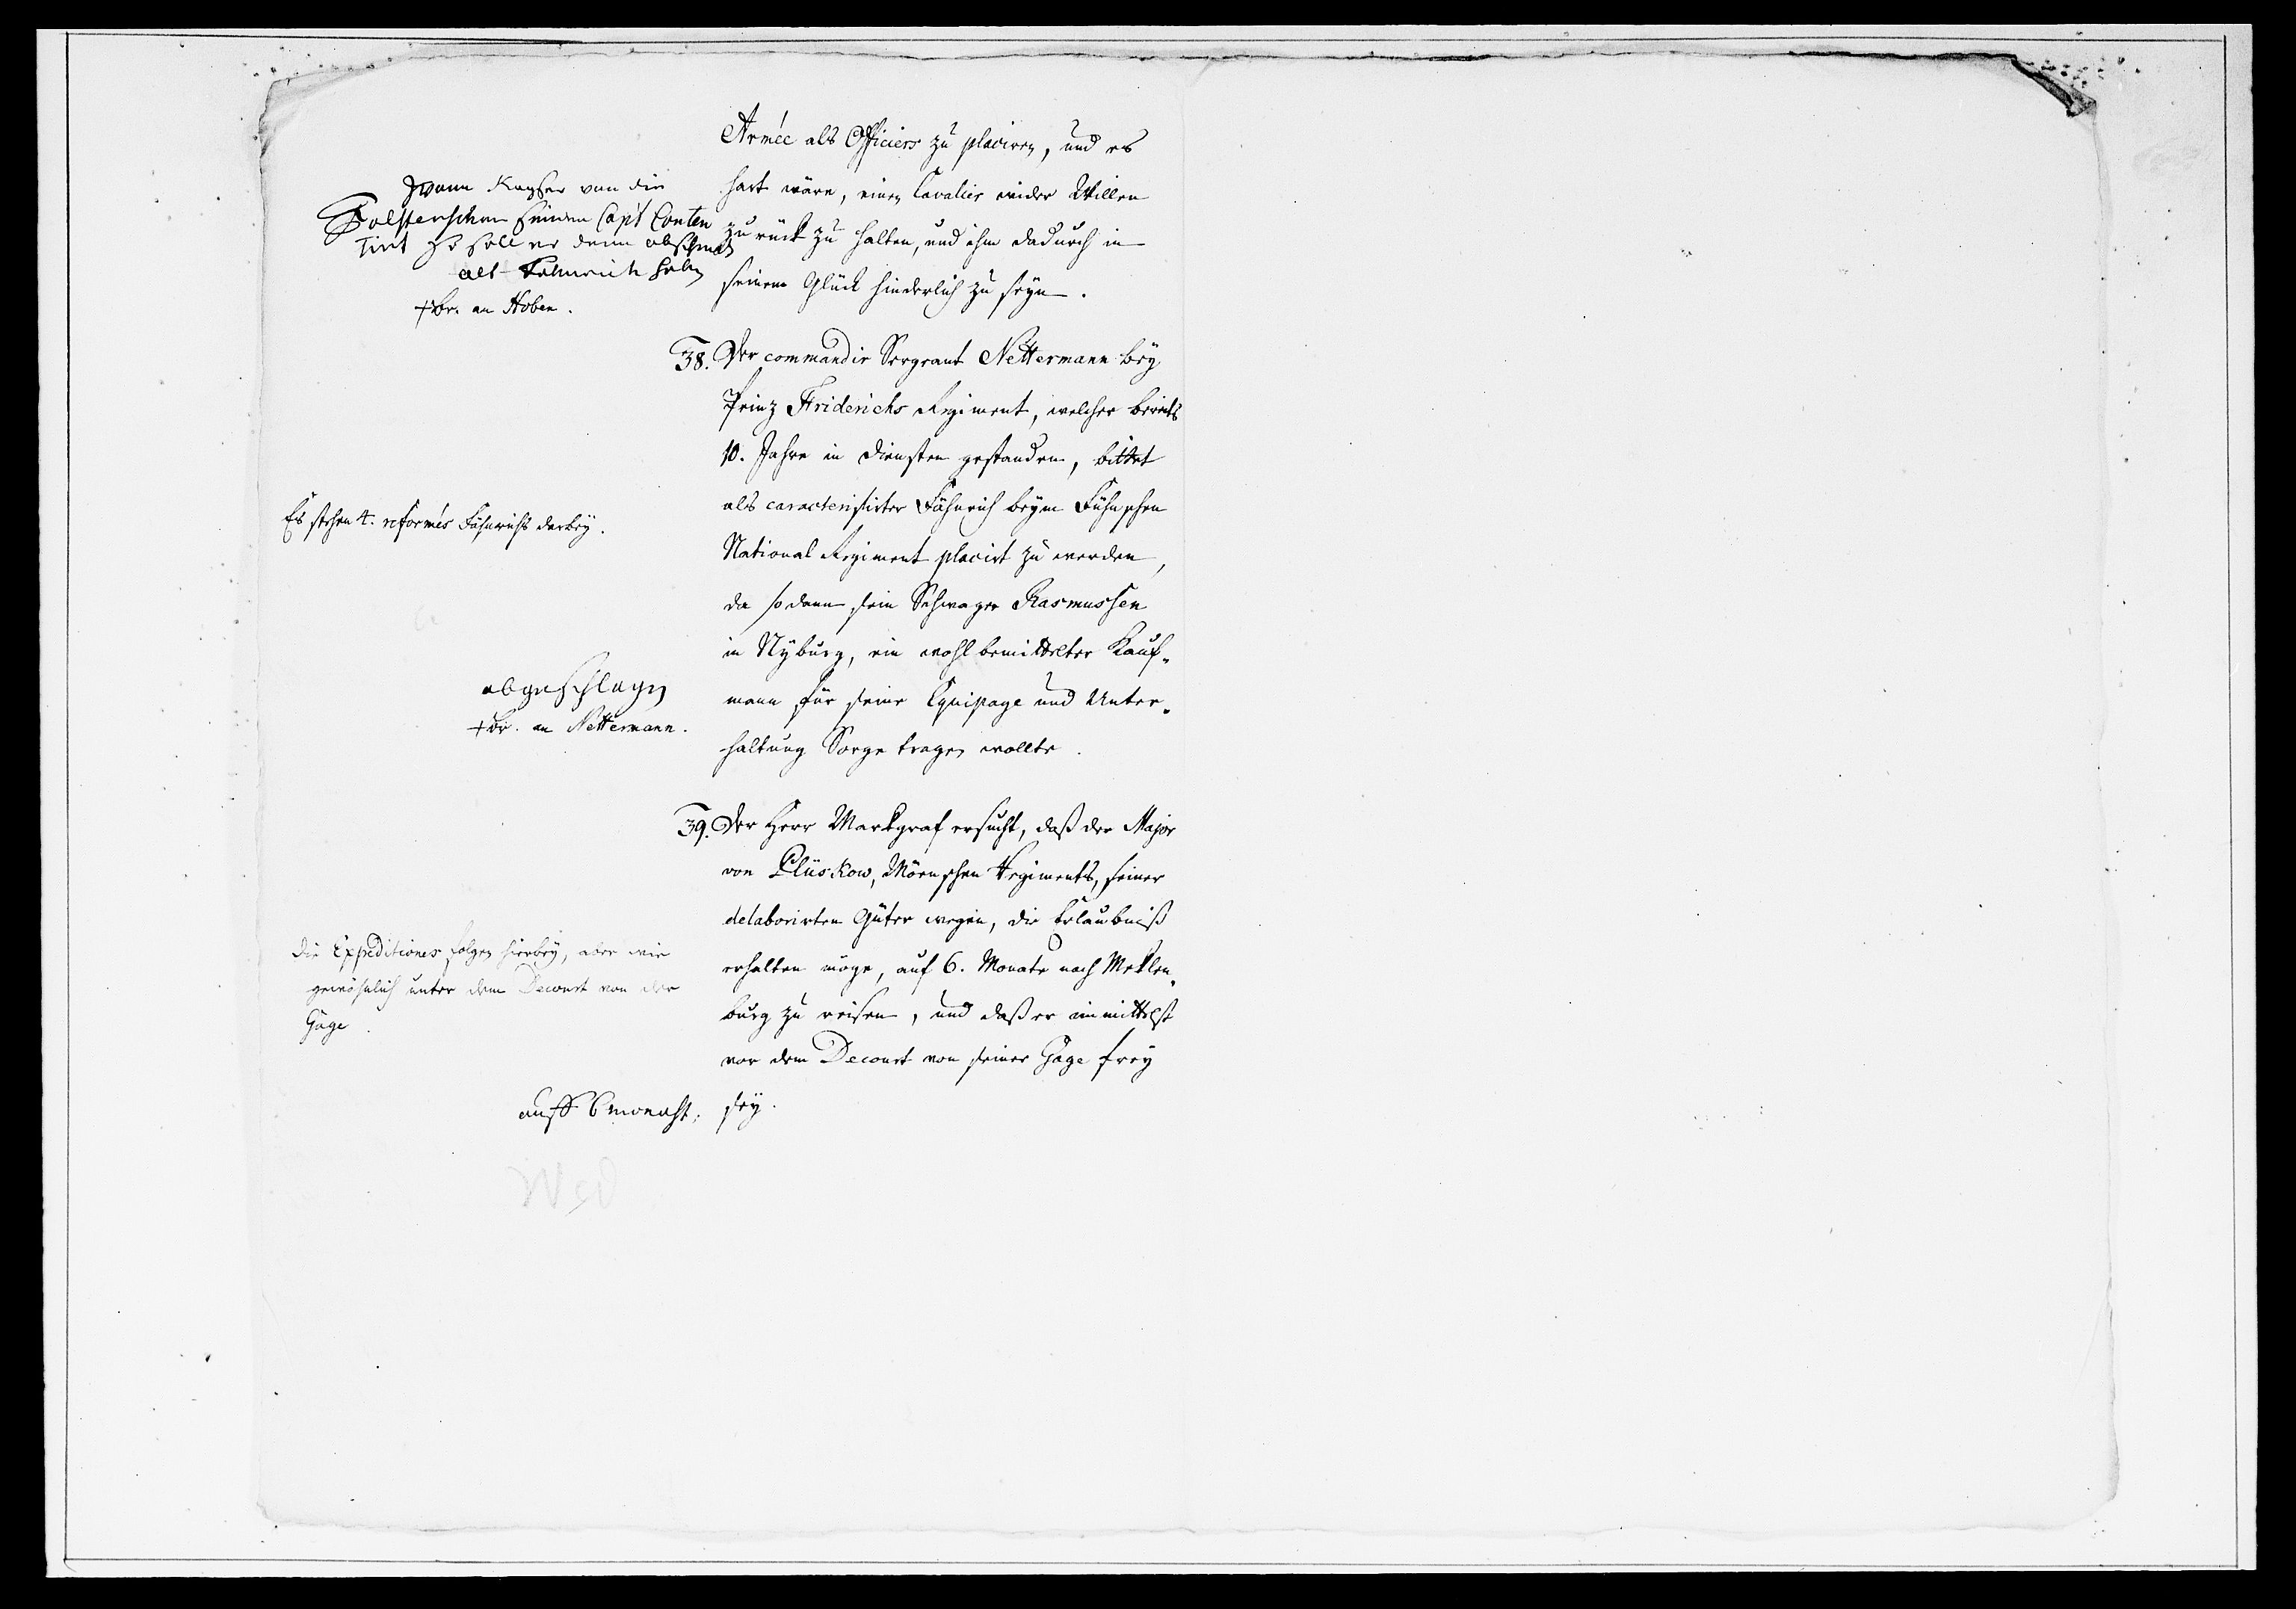 Armée als Officiers zu placiren, und es
hart wäre, einen Cavalier wider Willen
zurück zu halten, und ihm dadurch in
seinem Glück hinderlich zu seyn.
von die
Holsterschen seinen Capt Conten
tirt so soll er denn abscheidt
als Fehnrich haben
+ Br. an Hoben.
38. Der commandir Sergeant Nettermann bey
Prinz Friderichs Regiment, welcher bereits
10. Jahre in Diensten gestanden, bittet
als caracterisirter Fähnrich beym Fühnschen
National Regiment placirt zu werden,
da sodann sein Schwager Rasmussen
in Nyburg, ein wohl bemittelter Kauf-
mann für seine Equipage und Unter-
haltung Sorge tragen wollte.
Es stehen 4. reformés Fähnrichs darbey.
abgeschlagen
+ Br. an Nettermann.
39. Der Herr Markgraf ersucht, daß der Major
von Plüskow, Mörnschen Regiments, seiner
delaborirten Güter wegen, die Erlaubniß
erhalten möge, auf 6. Monate nach Meklen-
burg zu reisen, und daß er immittelst
vor dem Decourt von seiner Gage frey
sey.
Die Expeditiones folgen hierbey, aber wie
gewöhnlich unter dem Decourt von der
Gage.
auff 6 monaht.